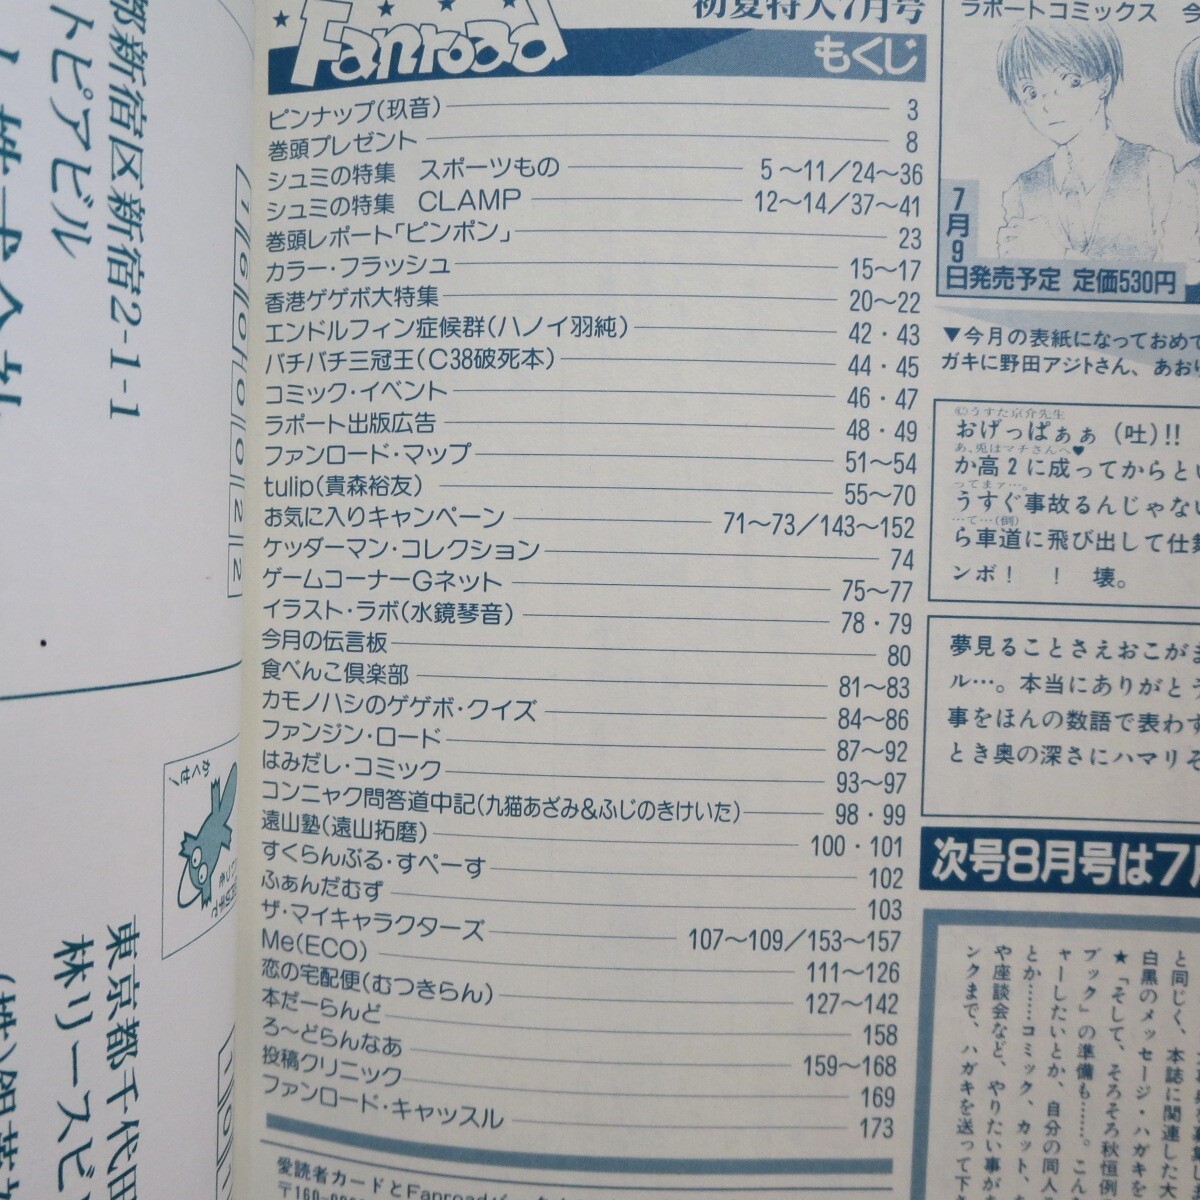 Fanroad
初夏特大7月号
もくじ
ピンナップ(玖音) 3
巻頭プレゼント 8
シュミの特集 スポーツもの 5～11/24～36
シュミの特集 CLAMP 12～14/37～41
巻頭レポート「ピンポン」 23
カラー・フラッシュ 15～17
香港ゲゲボ大特集 20～22
エンドルフィン症候群(ハノイ羽純) 42・43
バチバチ三冠王(C38破死本) 44・45
コミック・イベント 46・47
ラポート出版広告 48・49
ファンロード・マップ 51～54
tulip(貴森裕友) 55～70
お気に入りキャンペーン 71～73/143～152
ケッダーマン・コレクション 74
ゲームコーナーGネット 75～77
イラスト・ラボ(水鏡琴音) 78・79
今月の伝言板 80
食べんこ倶楽部 81～83
カモノハシのゲゲボ・クイズ 84～86
ファンジン・ロード 87～92
はみだし・コミック 93～97
コンニャク問答道中記(九猫あざみ&ふじのきけいた) 98・99
遠山塾(遠山拓磨) 100・101
すくらんぶる・すぺーす 102
ふぁんだむず 103
ザ・マイキャラクターズ 107～109/153～157
Me(ECO) 111～126
恋の宅配便(むつきらん) 127～142
本だーらんど 158
ろ～どらんなあ 159～168
投稿クリニック 169
ファンロード・キャッスル 173
愛読者カードとFanroad
〒160-00
ラポートコミックス 今
7月9
日発売予定 定価530円
▼今月の表紙になっておめで
ガキに野田アジトさん、あおり
©うすた京介先生
おげっぱぁぁ (吐)!!
あ、兎はマチさんへ♥
か高2に成ってからとい
ってまァ…。
うすぐ事故るんじゃない
…て…(倒)
ら車道に飛び出して仕舞
ンボ! ! 壊。
夢見ることさえおこがま
ル…。本当にありがとう
事をほんの数語で表わす
とき奥の深さにハマりそ
次号8月号は7月
と同じく、本誌に関連した大
白黒のメッセージ・ハガキを
★「そして、そろそろ秋恒例
ブック」の準備も……。こん
ャーしたいとか、自分の同人
とか……コミック、カット、
や座談会など、やりたい事が
ンクまで、ハガキを送って下
都新宿区新宿2-1-1
トピアビル
1600022
かくせ!
東京都千代田
林リースビ